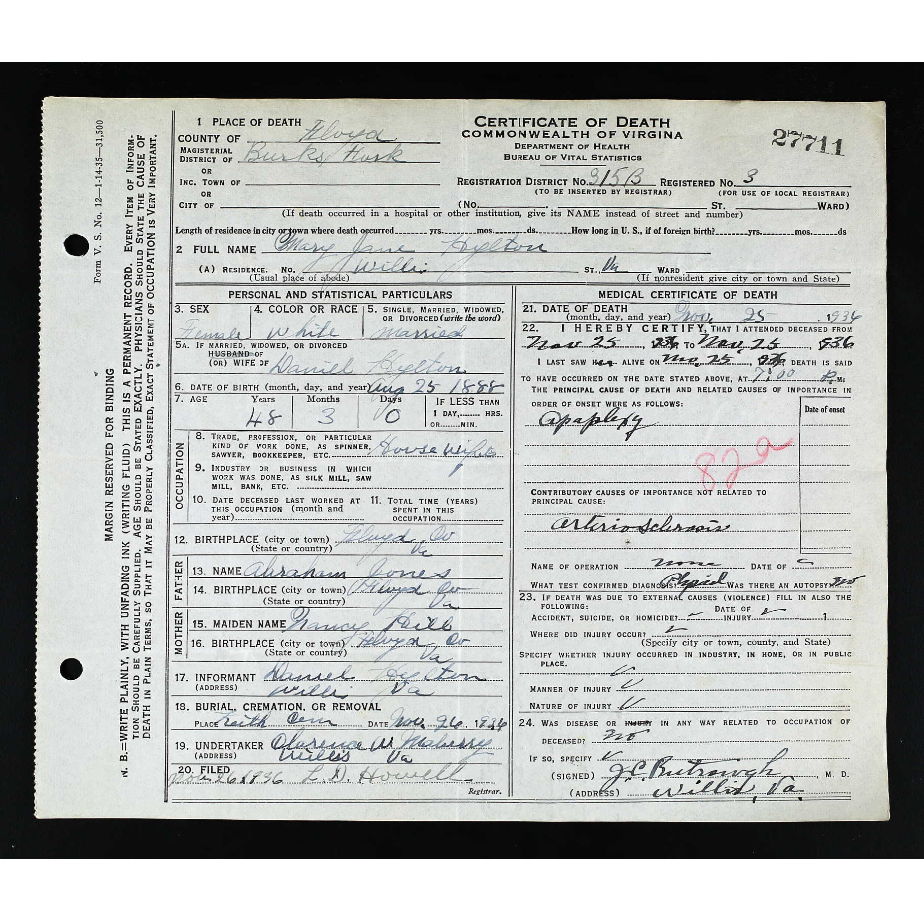 Form V. S. No. 12—1-14-35—31,500
MARGIN RESERVED FOR BINDING
N. B.—WRITE PLAINLY, WITH UNFADING INK (WRITING FLUID) THIS IS A PERMANENT RECORD. EVERY ITEM OF INFORM-
TION SHOULD BE CAREFULLY SUPPLIED. AGE SHOULD BE STATED EXACTLY. PHYSICIANS SHOULD STATE THE CAUSE OF
DEATH IN PLAIN TERMS, SO THAT IT MAY BE PROPERLY CLASSIFIED, EXACT STATEMENT OF OCCUPATION IS VERY IMPORTANT.
CERTIFICATE OF DEATH
COMMONWEALTH OF VIRGINA
DEPARTMENT OF HEALTH
BUREAU OF VITAL STATISTICS
27711
1 PLACE OF DEATH
COUNTY OF Floyd
MAGISTERIAL
DISTRICT OF Burks Fork
OR
INC. TOWN OF
OR
CITY OF
REGISTRATION DISTRICT NO. 315B REGISTERED NO. 3
(TO BE INSERTED BY REGISTRAR) (FOR USE OF LOCAL REGISTRAR)
(NO. ST. WARD)
(If death occurred in a hospital or other institution, give its NAME instead of street and number)
Length of residence in city or town where death occurred yrs. mos. ds. How long in U. S., if of foreign birth? yrs. mos. ds
2 FULL NAME Mary Jane Hylton
(A) RESIDENCE. NO. Willis ST., Va WARD
(Usual place of abode) (If nonresident give city or town and State)
PERSONAL AND STATISTICAL PARTICULARS
3. SEX 4. COLOR OR RACE 5. SINGLE, MARRIED, WIDOWED,
OR DIVORCED (write the word)
Female White Married
5A. IF MARRIED, WIDOWED, OR DIVORCED
HUSBAND OF
(OR) WIFE OF Daniel Hylton
6. DATE OF BIRTH (month, day, and year) Aug 25 1888
7. AGE Years Months Days IF LESS THAN
1 DAY, HRS.
OR MIN.
48 3 0
OCCUPATION
8. TRADE, PROFESSION, OR PARTICULAR
KIND OF WORK DONE, AS SPINNER,
SAWYER, BOOKKEEPER, ETC. House Wife
9. INDUSTRY OR BUSINESS IN WHICH
WORK WAS DONE, AS SILK MILL, SAW
MILL, BANK, ETC.
10. DATE DECEASED LAST WORKED AT
THIS OCCUPATION (month and
year)
11. TOTAL TIME (YEARS)
SPENT IN THIS
OCCUPATION
12. BIRTHPLACE (city or town) Floyd Co
(State or country) Va
FATHER
13. NAME Abraham Jones
14. BIRTHPLACE (city or town) Floyd Co
(State or country) Va
MOTHER
15. MAIDEN NAME Nancy Hill
16. BIRTHPLACE (city or town) Floyd Co
(State or country) Va
17. INFORMANT Daniel Hylton
(ADDRESS) Willis Va
18. BURIAL, CREMATION, OR REMOVAL
PLACE Cem DATE Nov. 26, 1936
19. UNDERTAKER Clarence W
(ADDRESS) Willis Va
20. FILED Nov 26 1936 L. D. Howell
Registrar.
MEDICAL CERTIFICATE OF DEATH
21. DATE OF DEATH
(month, day, and year) Nov. 25 1936
22. I HEREBY CERTIFY, THAT I ATTENDED DECEASED FROM
Nov 25, 1936 TO Nov, 25, 1936
I LAST SAW her ALIVE ON Nov, 25, 1936 DEATH IS SAID
TO HAVE OCCURRED ON THE DATE STATED ABOVE, AT 7:00 P. M:
THE PRINCIPAL CAUSE OF DEATH AND RELATED CAUSES OF IMPORTANCE IN
ORDER OF ONSET WERE AS FOLLOWS:
Date of onset
Apaplexy
82a
CONTRIBUTORY CAUSES OF IMPORTANCE NOT RELATED TO
PRINCIPAL CAUSE:
arterio sclerosis
NAME OF OPERATION none DATE OF
WHAT TEST CONFIRMED DIAGNOSIS? Physical WAS THERE AN AUTOPSY? no
23. IF DEATH WAS DUE TO EXTERNAL CAUSES (VIOLENCE) FILL IN ALSO THE
FOLLOWING:
ACCIDENT, SUICIDE, OR HOMICIDE? DATE OF INJURY 1
WHERE DID INJURY OCCUR?
(Specify city or town, county, and State)
SPECIFY WHETHER INJURY OCCURRED IN INDUSTRY, IN HOME, OR IN PUBLIC
PLACE.
MANNER OF INJURY
NATURE OF INJURY
24. WAS DISEASE OR INJURY IN ANY WAY RELATED TO OCCUPATION OF
DECEASED? no
IF SO, SPECIFY
(SIGNED) J. C. , M. D.
(ADDRESS) Willis, Va.